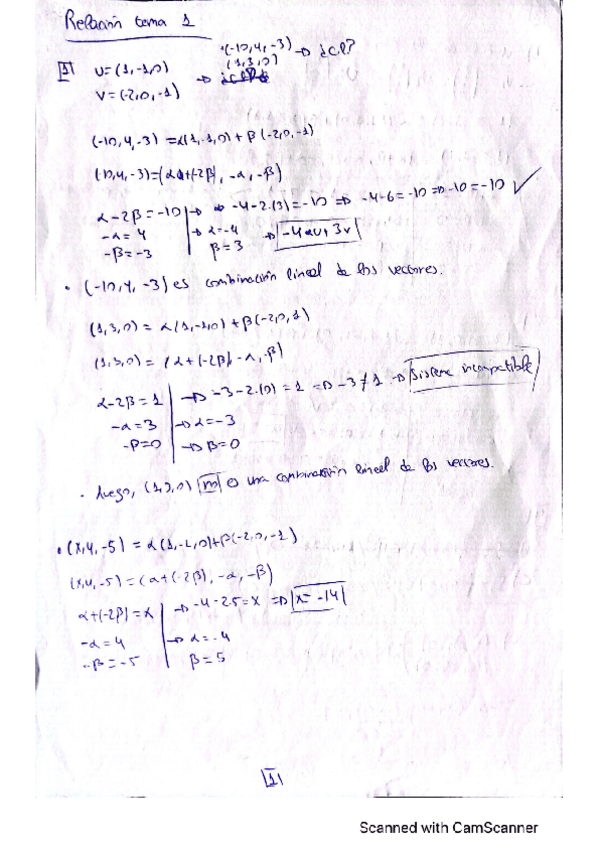 Relación tema 1
·(-10,4,-3) → ¿c.l?
(1,3,0)
1 U=(1,-1,0) →
V=(-2,0,-1)
(-10,4,-3) = α(1,-1,0) + β(-2,0,-1)
(-10,4,-3)=(α+(-2β), -α, -β)
α-2β=-10 → -4-2·(3)=-10 ⇒ -4-6=-10 ⇒ -10=-10 ✓
-α=4 → α=-4 ⇒ -4u+3v
-β=-3 β=3
· (-10,4,-3) es combinación lineal de los vectores.
(1,3,0) = α(1,-1,0) + β(-2,0,1)
(1,3,0) = (α+(-2β), -α, -β)
α-2β=1 → -3-2·(0)=1 ⇒ -3≠1 → Sistema incompatible
-α=3 → α=-3
-β=0 → β=0
· Luego, (1,3,0) no es una combinación lineal de los vectores.
· (x,4,-5) = α(1,-1,0)+β(-2,0,-1)
(x,4,-5)=(α+(-2β), -α, -β)
α+(-2β)=x → -4-2·5=x ⇒ x=-14
-α=4 → α=-4
-β=-5 β=5
1
Scanned with CamScanner